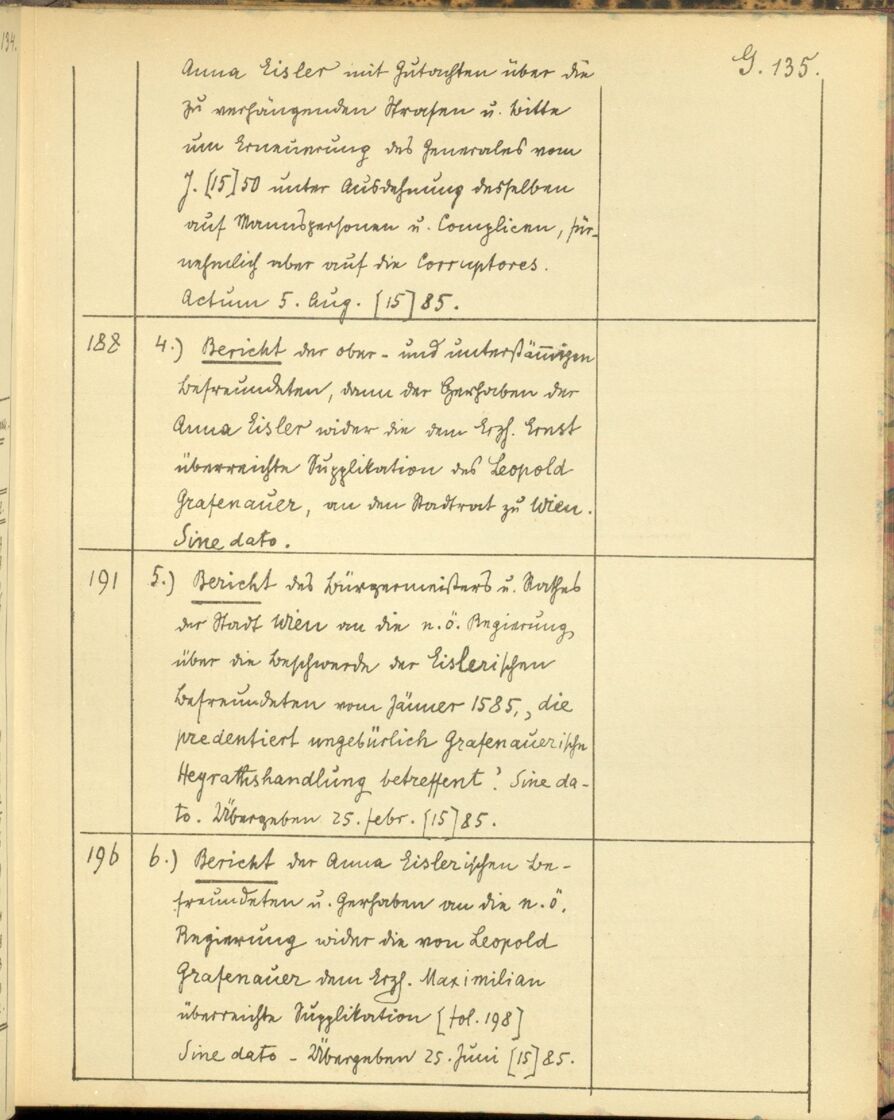 G. 135.
Anna Eisler mit Gutachten über die
zu verhängenden Strafen u. Bitte
um Erneuerung des Generales vom
J. [15]50 unter Ausdehnung desselben
auf Mannspersonen u. Complicen, für-
nehmlich aber auf die Corruptores.
Actum 5. Aug. [15]85.
188 4.) Bericht der ober- und unterstännigen
Befreundeten, dann der Gerhaben der
Anna Eisler wider die dem Erzh. Ernst
überreichte Supplikation des Leopold
Grafenauer, an den Stadtrat zu Wien.
Sine dato.
191 5.) Bericht des Bürgermeisters u. Rathes
der Stadt Wien an die n.ö. Regierung
über die Beschwerde der Eislerischen
Befreundeten vom Jänner 1585, „die
predentiert ungebürlich Grafenauerische
Heyrathshandlung betreffent“. Sine da-
to. Übergeben 25. Febr. [15]85.
196 6.) Bericht der Anna Eislerischen Be-
freundeten u. Gerhaben an die n.ö.
Regierung wider die von Leopold
Grafenauer dem Erzh. Maximilian
überreichte Supplikation [fol. 198]
Sine dato - Übergeben 25. Juni [15]85.
134.